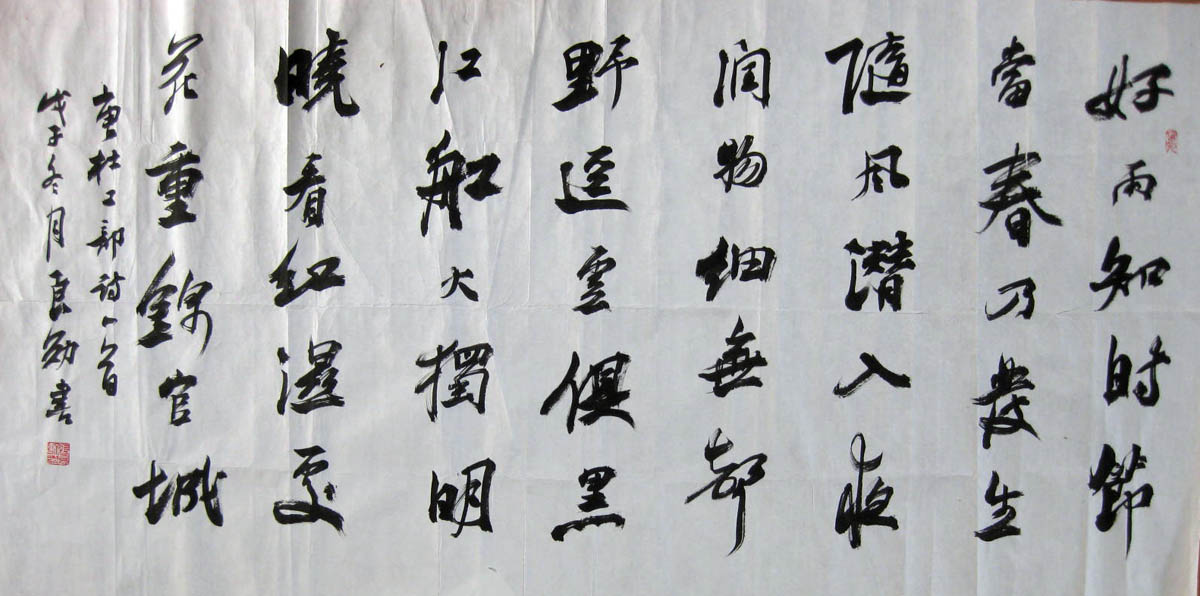 好雨知時節
當春乃發生
隨風潛入夜
润物細無聲
野逕雲俱黑
江船火獨明
曉看紅濕處
花重錦官城
唐杜工部詩一首
戊子冬月良勛書